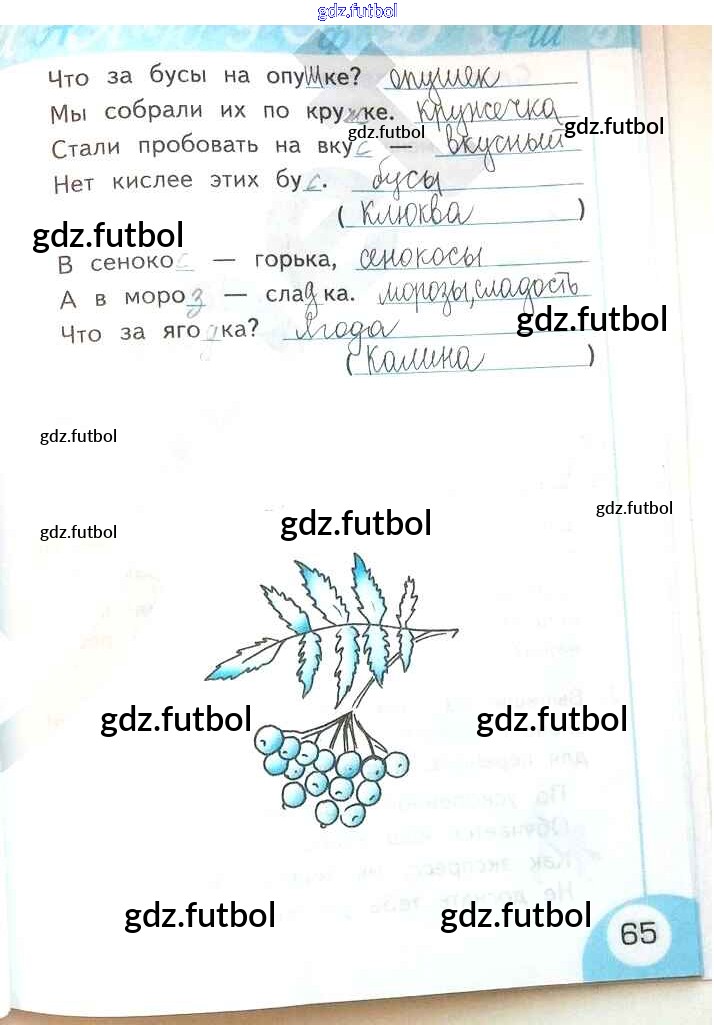 gdz.futbol
Что за бусы на опушке? опушек
Мы собрали их по кружке. кружечка
gdz.futbol
gdz.futbol
Стали пробовать на вкус — вкусный
Нет кислее этих бус. бусы
( клюква )
gdz.futbol
В сенокос — горька, сенокосы
А в мороз — сладка. морозы, сладость
gdz.futbol
Что за ягодка? ягода
( калина )
gdz.futbol
gdz.futbol
gdz.futbol
gdz.futbol
gdz.futbol
gdz.futbol
gdz.futbol
gdz.futbol
65